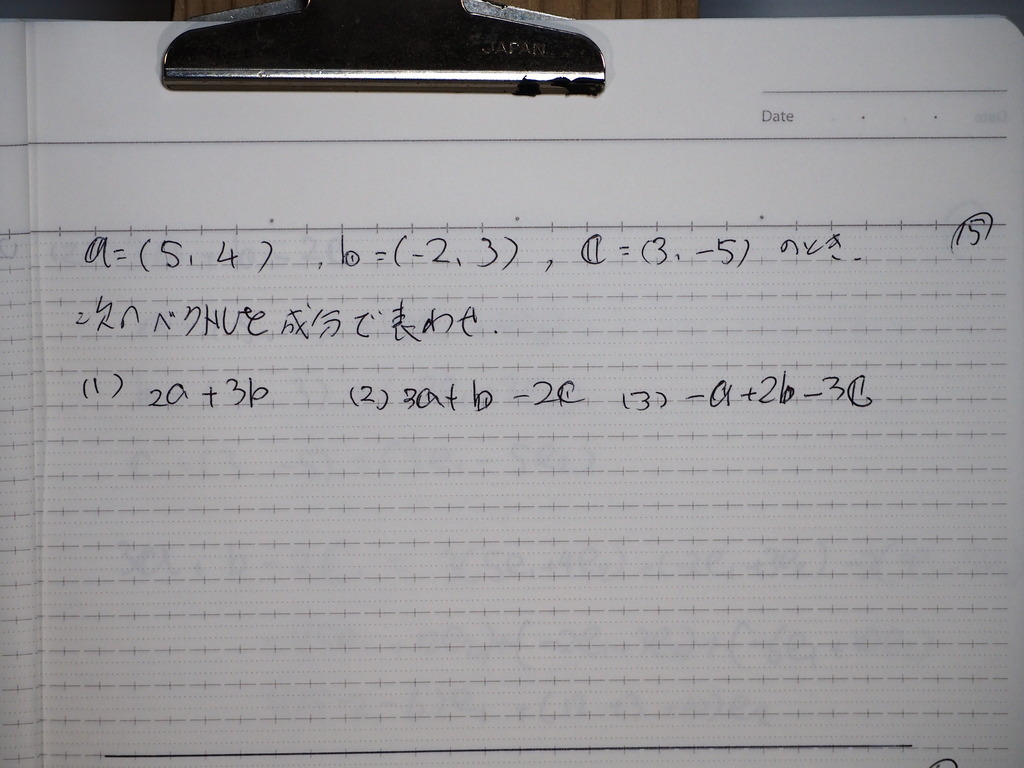 JAPAN
Date
15
a=(5, 4), b=(-2, 3), c=(3, -5) のとき.
次のベクトルを成分で表わせ.
(1) 2a+3b (2) 3a+b-2c (3) -a+2b-3c